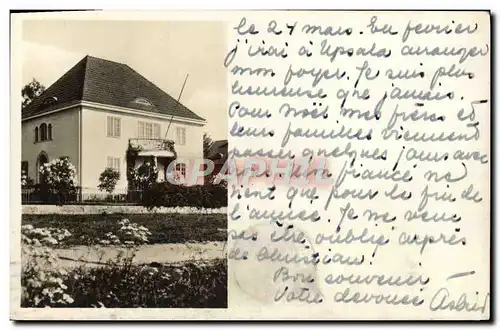 le 24 mars. En fevrier
j'irai à Upsala arranger
mon foyer. Je suis plus
heureuse que jamais.
Pour Noël mes frères et
leurs familles viennent
passer quelques jours avec
nous. Mon fiancé ne
vient que pour la fin de
l'année. Je me veux
pas être oublié auprès
de Christian!
Bon souvenir
Votre devouée Astrid
CPA